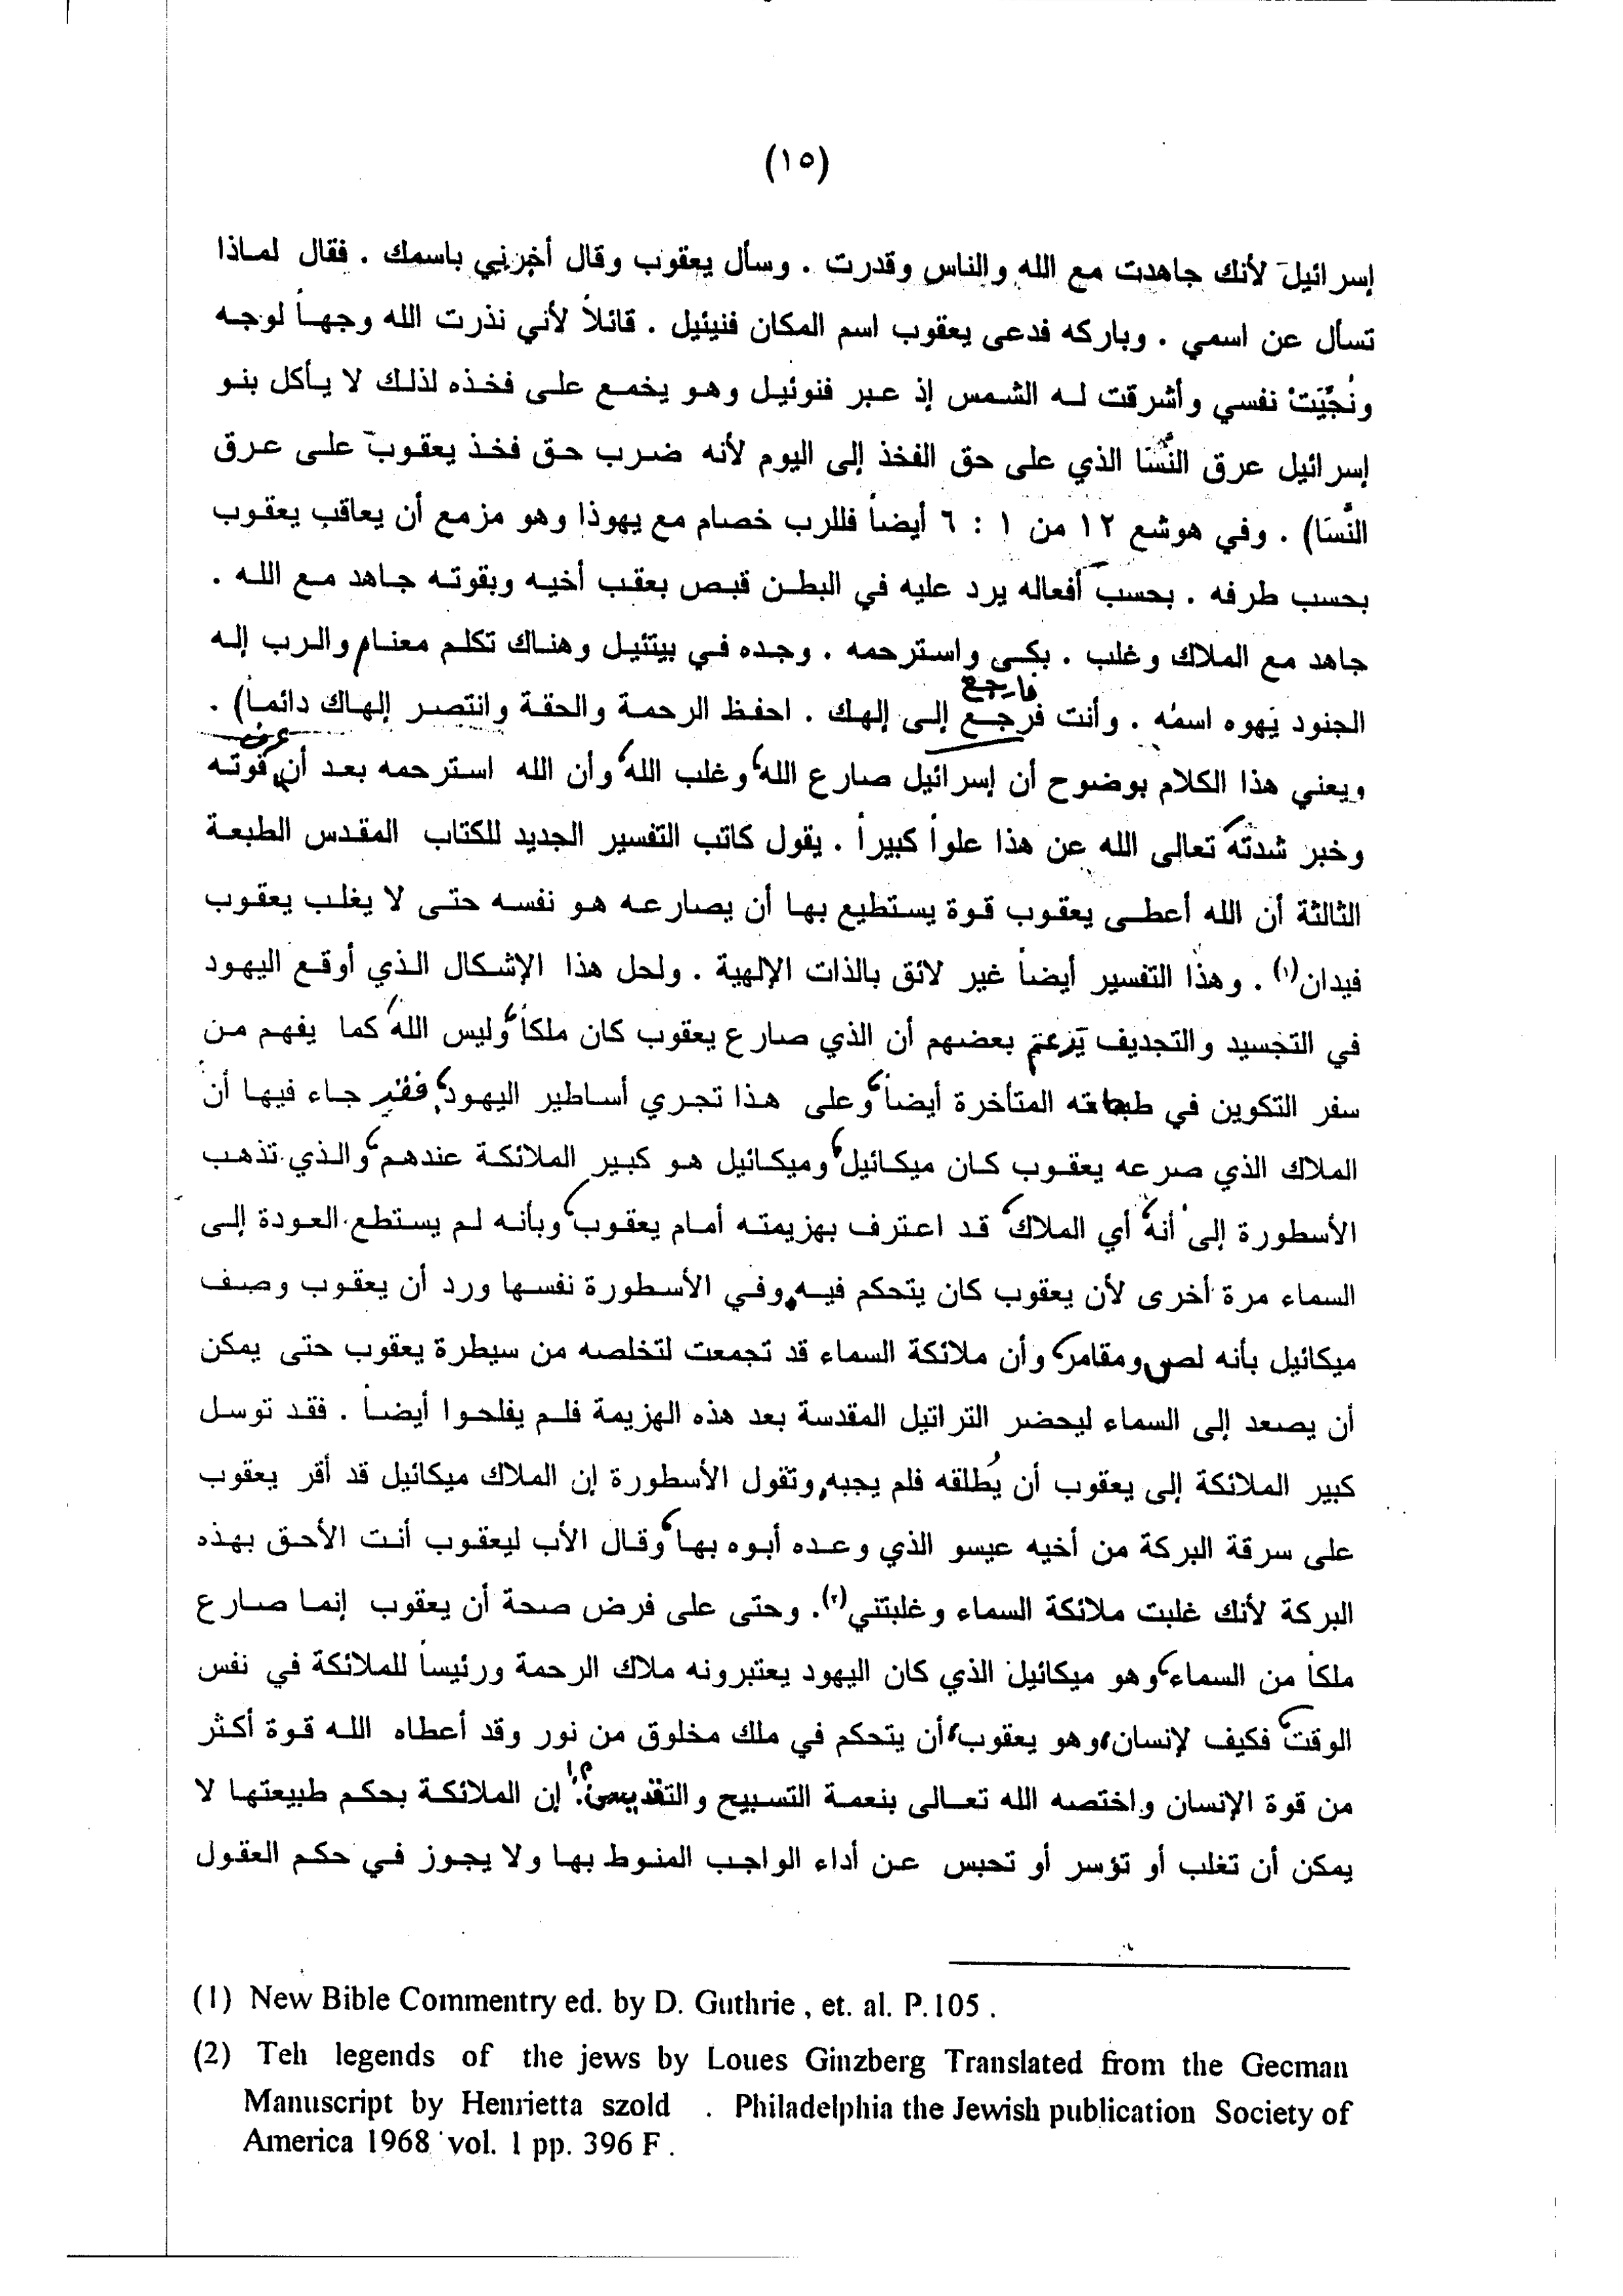 (١٥)
إسرائيل لأنك جاهدت مع الله والناس وقدرت . وسأل يعقوب وقال أخبرني باسمك . فقال لماذا
تسأل عن اسمي . وباركه فدعى يعقوب اسم المكان فنيئيل . قائلاً لأني نذرت الله وجهاً لوجه
ونُجِّيَتْ نفسي وأشرقت له الشمس إذ عبر فنوئيل وهو يخمع على فخذه لذلك لا يأكل بنو
إسرائيل عرق النَّسَا الذي على حق الفخذ إلى اليوم لأنه ضرب حق فخذ يعقوب على عرق
النَّسَا) . وفي هوشع ١٢ من ١ : ٦ أيضاً فللرب خصام مع يهوذا وهو مزمع أن يعاقب يعقوب
بحسب طرفه . بحسب أفعاله يرد عليه في البطن قبص بعقب أخيه وبقوته جاهد مع الله .
جاهد مع الملاك وغلب . بكى واسترحمه . وجده في بيتئيل وهناك تكلم معنا والرب إله
فارجع
الجنود يَهوه اسمُه . وأنت فرجع إلى إلهك . احفظ الرحمة والحقة وانتصر إلهاك دائماً) .
عرف
ويعني هذا الكلام بوضوح أن إسرائيل صارع الله، وغلب الله، وأن الله استرحمه بعد أن قوته
وخبر شدته، تعالى الله عن هذا علواً كبيراً . يقول كاتب التفسير الجديد للكتاب المقدس الطبعة
الثالثة أن الله أعطى يعقوب قوة يستطيع بها أن يصارعه هو نفسه حتى لا يغلب يعقوب
فيدان(١) . وهذا التفسير أيضاً غير لائق بالذات الإلهية . ولحل هذا الإشكال الذي أوقع اليهود
في التجسيد والتجديف يزعم بعضهم أن الذي صارع يعقوب كان ملكاً، وليس الله، كما يفهم من
سفر التكوين في طبعاته المتأخرة أيضاً، وعلى هذا تجري أساطير اليهود، فقد جاء فيها أن
الملاك الذي صرعه يعقوب كان ميكائيل، وميكائيل هو كبير الملائكة عندهم، والذي تذهب
الأسطورة إلى أنه، أي الملاك، قد اعترف بهزيمته أمام يعقوب، وبأنه لم يستطع العودة إلى
السماء مرة أخرى لأن يعقوب كان يتحكم فيه، وفي الأسطورة نفسها ورد أن يعقوب وصف
ميكائيل بأنه لص، ومقامر، وأن ملائكة السماء قد تجمعت لتخلصه من سيطرة يعقوب حتى يمكن
أن يصعد إلى السماء ليحضر التراتيل المقدسة بعد هذه الهزيمة فلم يفلحوا أيضاً . فقد توسل
كبير الملائكة إلى يعقوب أن يُطلقه فلم يجبه، وتقول الأسطورة إن الملاك ميكائيل قد أقر يعقوب
على سرقة البركة من أخيه عيسو الذي وعده أبوه بها، وقال الأب ليعقوب أنت الأحق بهذه
البركة لأنك غلبت ملائكة السماء وغلبتني(٢). وحتى على فرض صحة أن يعقوب إنما صارع
ملكاً من السماء، وهو ميكائيل الذي كان اليهود يعتبرونه ملاك الرحمة ورئيساً للملائكة في نفس
الوقت، فكيف لإنسان، وهو يعقوب، أن يتحكم في ملك مخلوق من نور وقد أعطاه الله قوة أكثر
من قوة الإنسان واختصه الله تعالى بنعمة التسبيح والتقديس؟! إن الملائكة بحكم طبيعتها لا
يمكن أن تغلب أو تؤسر أو تحبس عن أداء الواجب المنوط بها ولا يجوز في حكم العقول
(1) New Bible Commentry ed. by D. Guthrie , et. al. P.105 .
(2) Teh legends of the jews by Loues Ginzberg Translated from the Gecman
Manuscript by Henrietta szold . Philadelphia the Jewish publication Society of
America 1968 vol. 1 pp. 396 F .